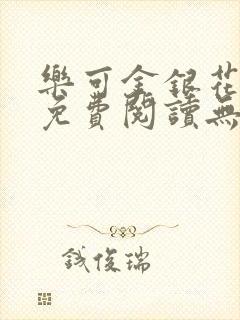 樂可金銀花
免費閱讀無
錢俊瑞